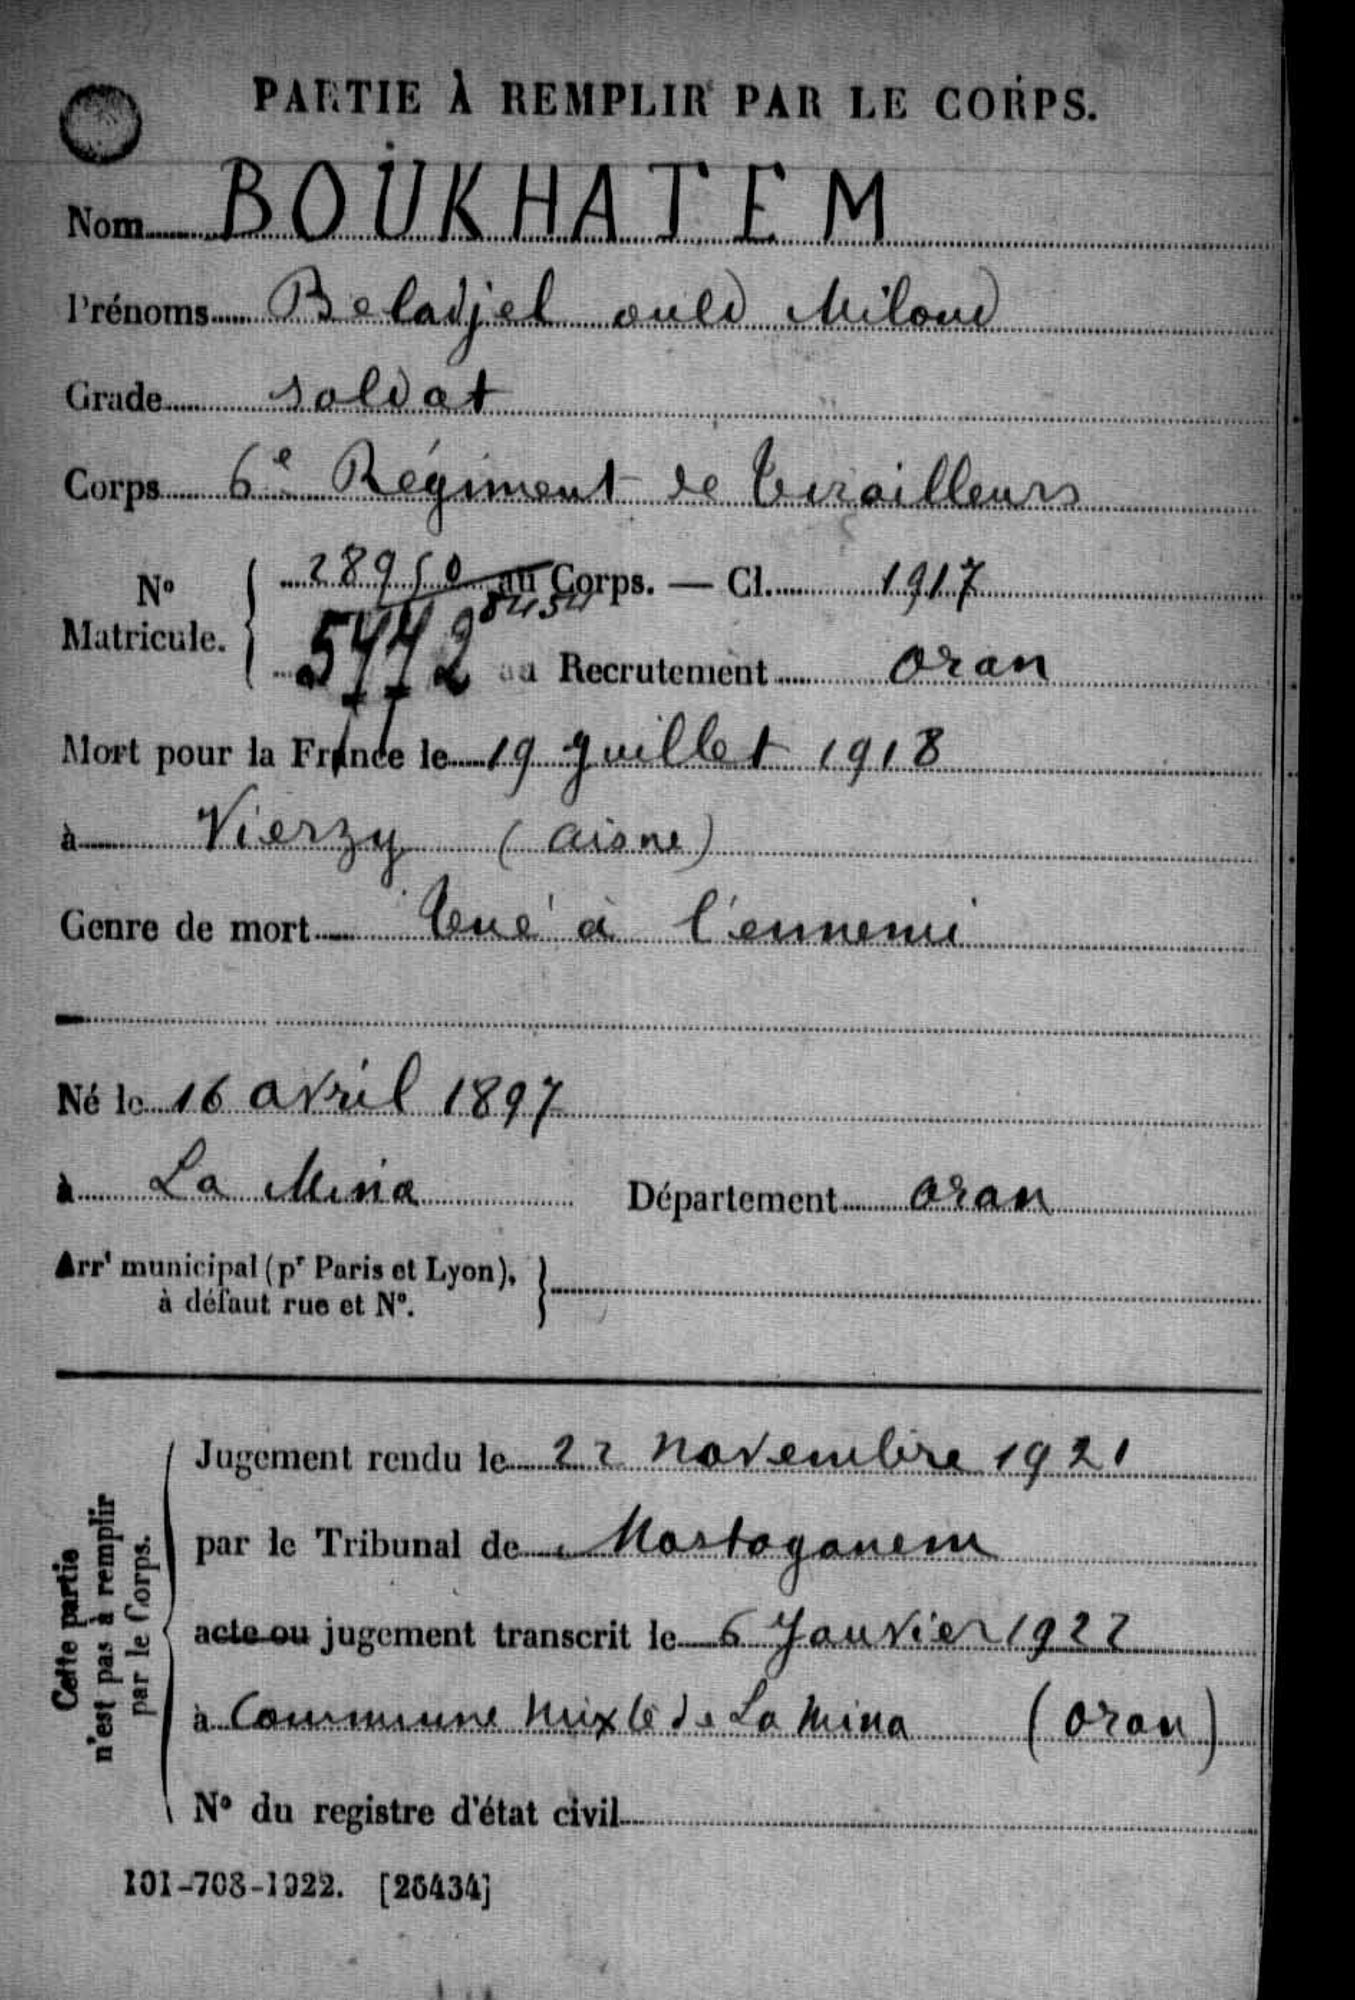 PARTIE À REMPLIR PAR LE CORPS.
Nom BOUKHATEM
Prénoms Beladjel ould Miloud
Grade soldat
Corps 6e Régiment de Tirailleurs
No Matricule. 28950 au Corps. — Cl. 1917
8454
5772 au Recrutement Oran
Mort pour la France le 19 Juillet 1918
à Vierzy (Aisne)
Genre de mort Tué à l'ennemi
Né le 16 avril 1897
à La Mina Département Oran
Arrt municipal (pr Paris et Lyon),
à défaut rue et No.
Cette partie
n'est pas à remplir
par le Corps.
Jugement rendu le 22 Novembre 1921
par le Tribunal de Mostaganem
acte ou jugement transcrit le 6 Janvier 1922
à Commune Mixte de La Mina (Oran)
No du registre d'état civil
101-708-1922. [26434]